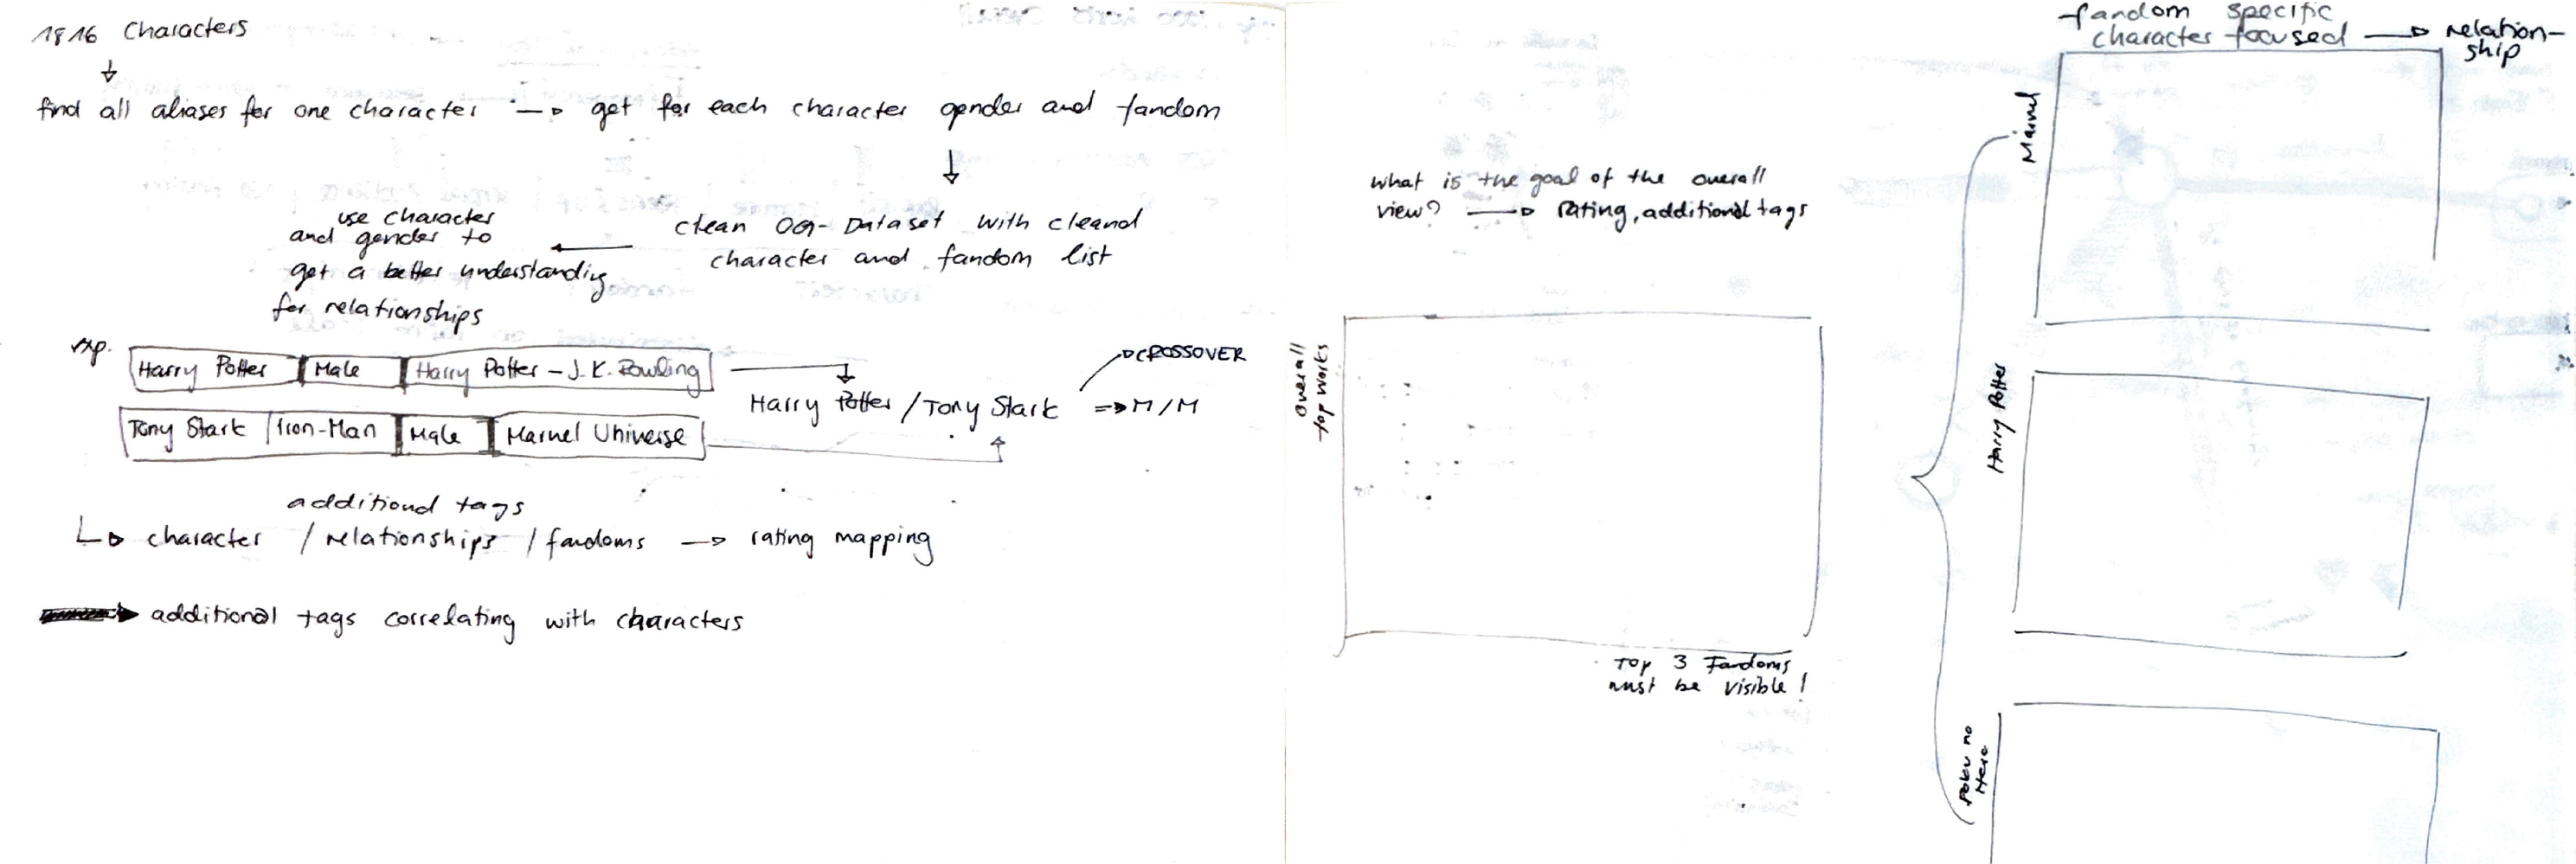 1816 Characters
find all aliases for one character → get for each character gender and fandom
clean OG-Dataset with cleand
character and fandom list
use character
and gender to
get a better understanding
for relationships
exp.
Harry Potter | Male | Harry Potter – J.K. Rowling
Tony Stark | Iron-Man | Male | Marvel Universe
Harry Potter / Tony Stark => M/M
CROSSOVER
additional tags
character / relationships / fandoms → rating mapping
additional tags correlating with characters
What is the goal of the overall
view? → rating, additional tags
overall
top works
Top 3 Fandoms
must be visible!
fandom specific
character focused → relation-
ship
Marvel
Harry Potter
Boku no
Hero